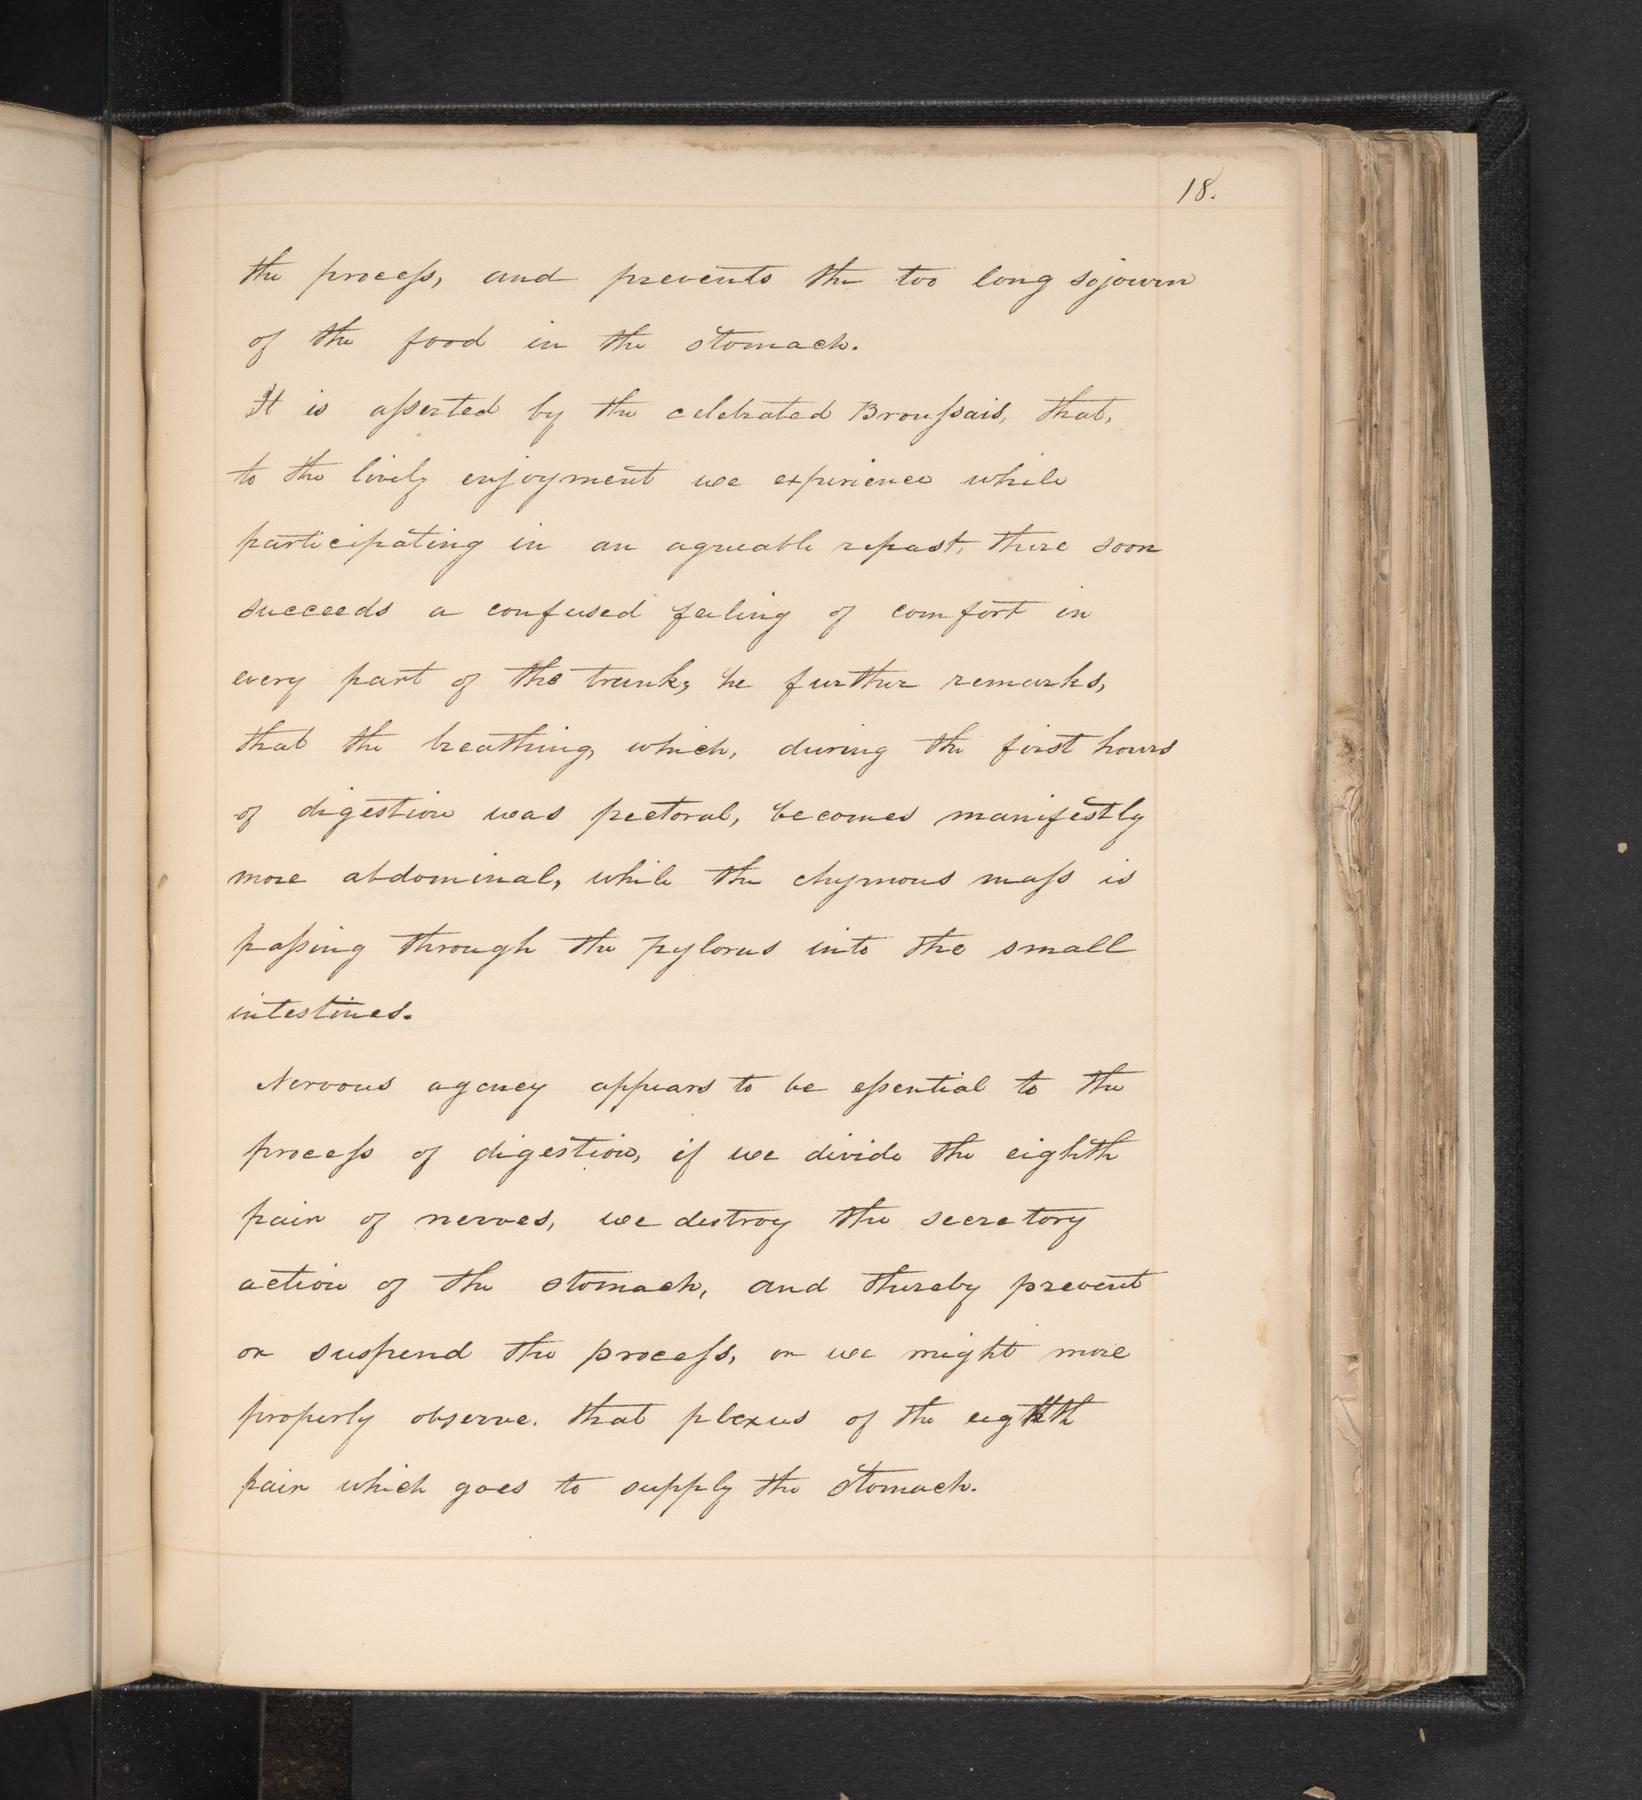 18.
the process, and prevents the too long sojourn
of the food in the stomach.
It is asserted by the celebrated Broussais, that,
to the lively enjoyment we experience while
participating in an agreeable repast, there soon
succeeds a confused feeling of comfort in
every part of the trunk, he further remarks,
that the breathing, which, during the first hours
of digestion was pectoral, becomes manifestly
more abdominal, while the chymous mass is
passing through the pylorus into the small
intestines.
Nervous agency appears to be essential to the
process of digestion, if we divide the eighth
pair of nerves, we destroy the secretory
action of the stomach, and thereby prevent
or suspend the process, or we might more
properly observe. that plexus of the eighth
pair which goes to supply the stomach.